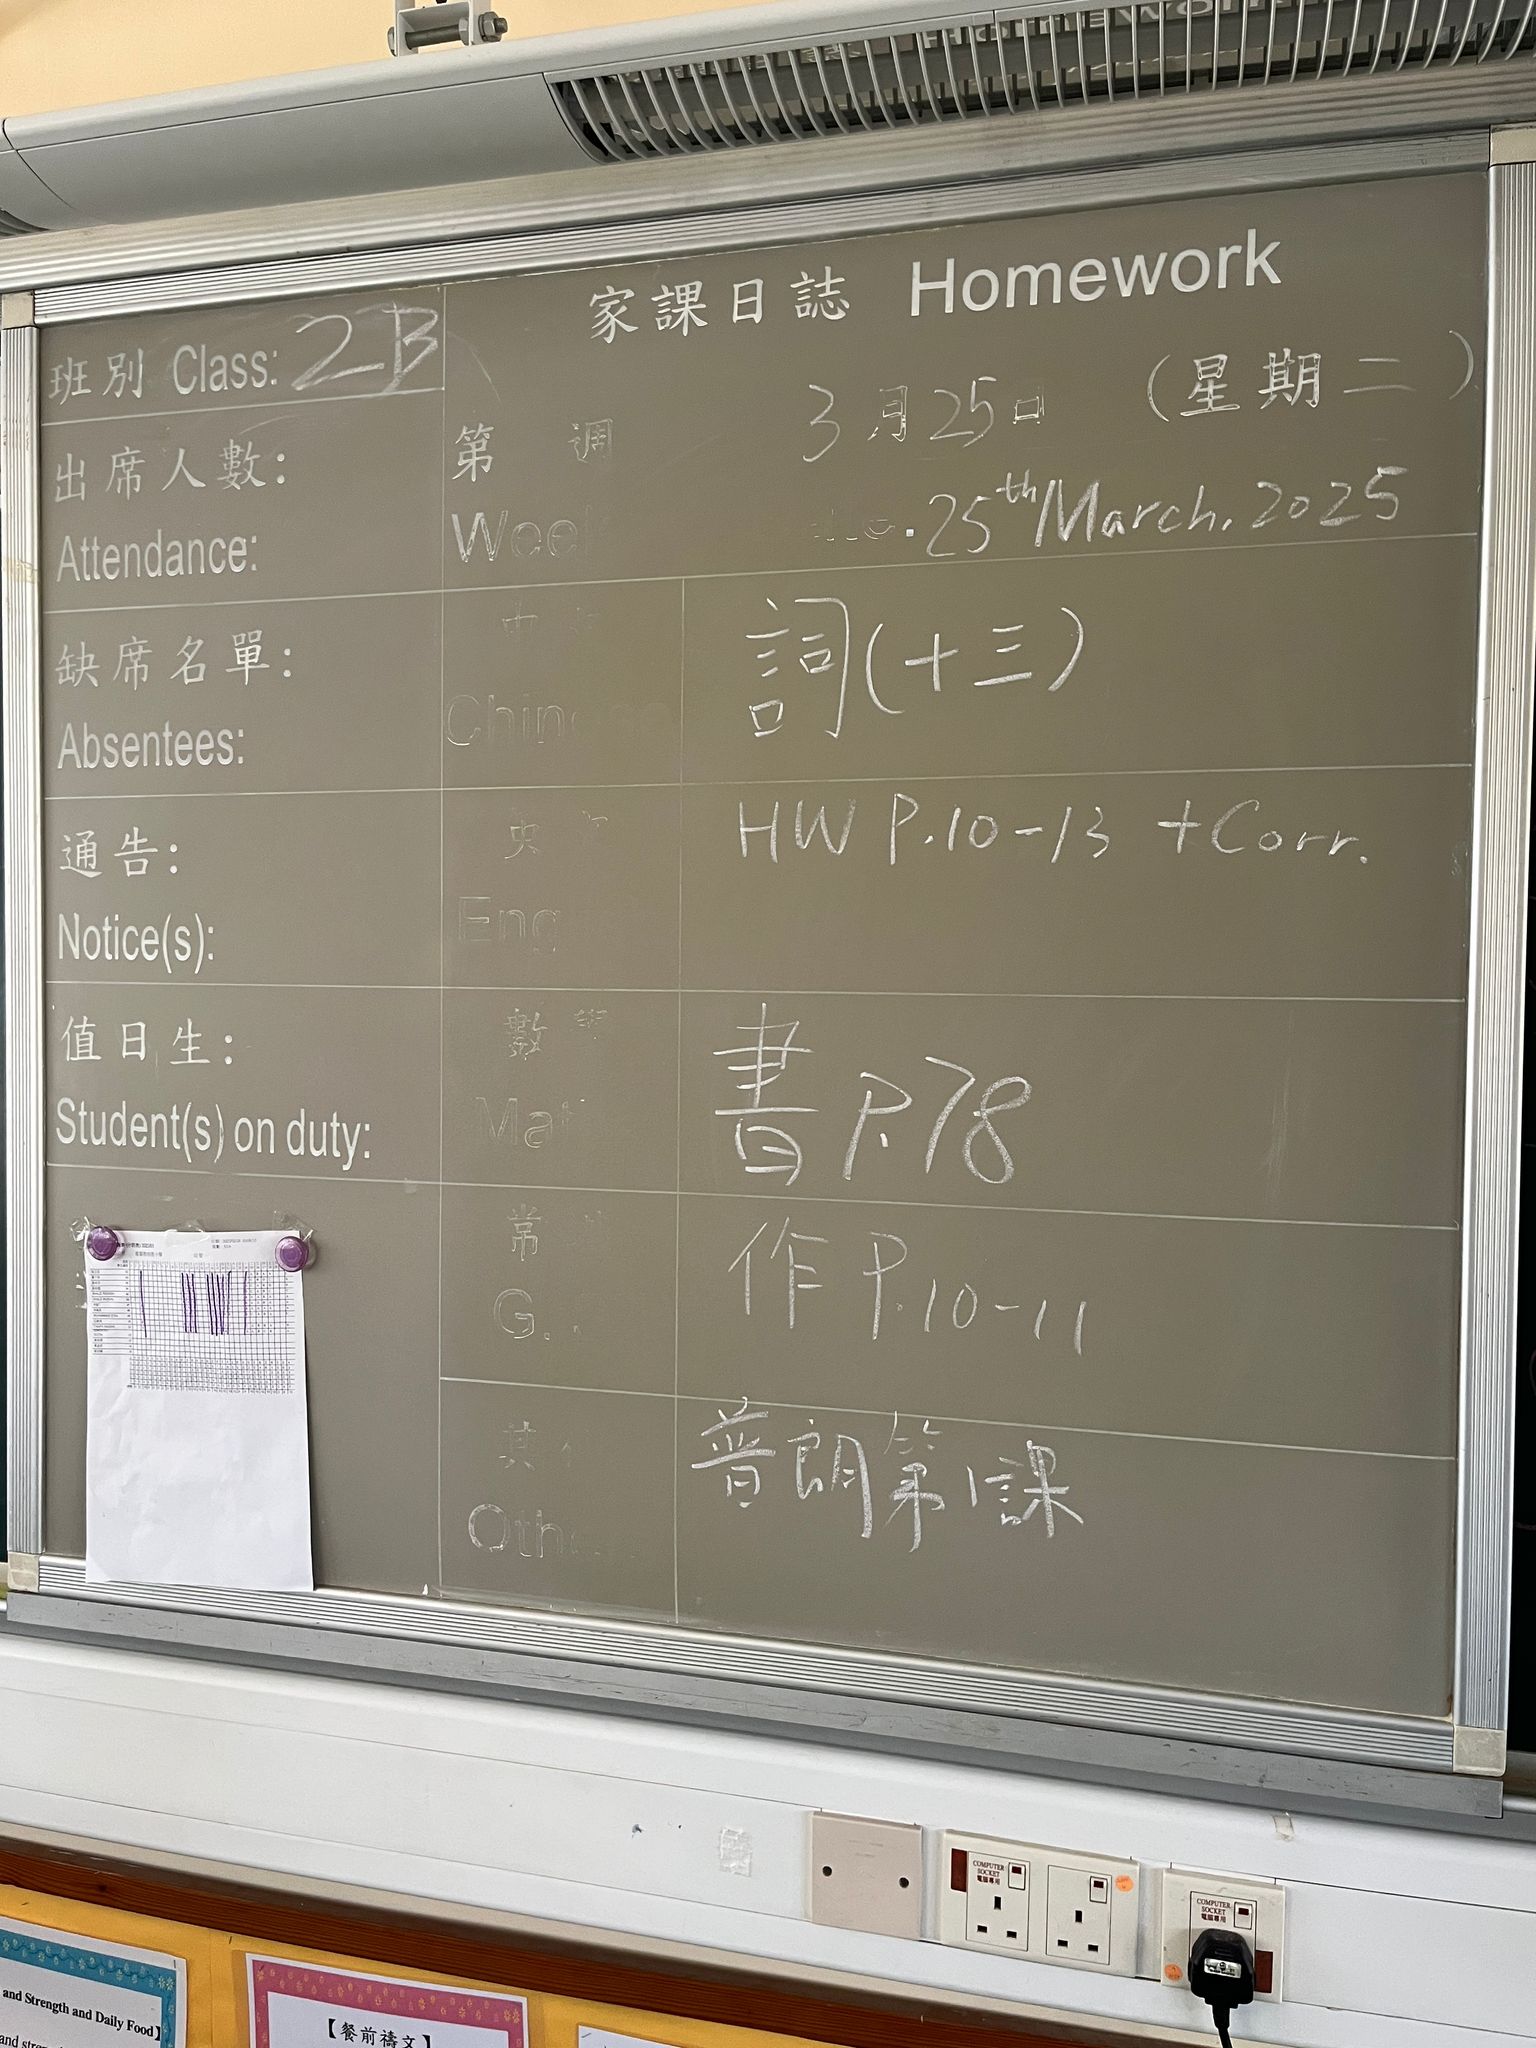 家課日誌 Homework
班別 Class: 2B
出席人數:
Attendance:
缺席名單:
Absentees:
通告:
Notice(s):
值日生:
Student(s) on duty:
第 週
3月25日 (星期二)
25th March, 2025
詞(十三)
HW P.10-13 + Corr.
數
書 P.78
常
G.
作 P.10-11
其
普朗第1課
COMPUTER
SOCKET
電腦專用
COMPUTER
SOCKET
電腦專用
and Strength and Daily Food】
【餐前禱文】